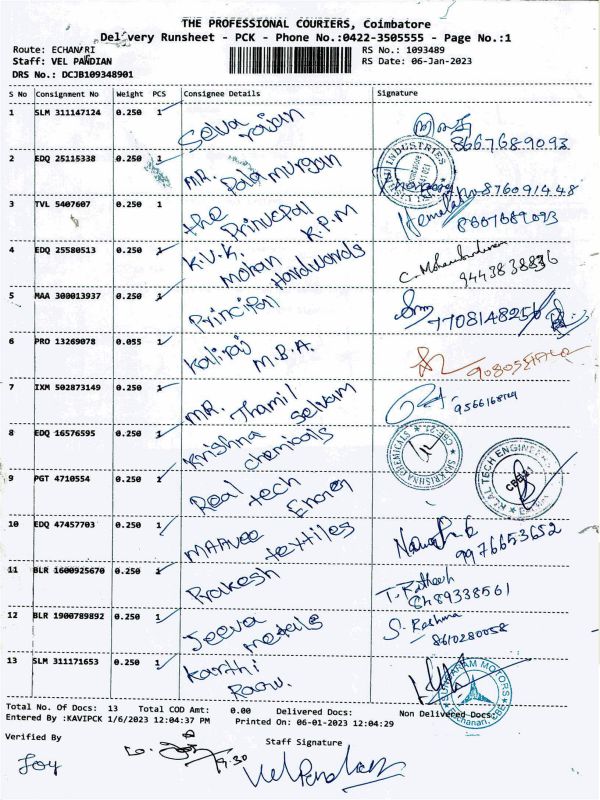 THE PROFESSIONAL COURIERS, Coimbatore
Delivery Runsheet - PCK - Phone No.:0422-3505555 - Page No.:1
Route: ECHANARI RS No.: 1093489
Staff: VEL PANDIAN RS Date: 06-Jan-2023
DRS No.: DCJB109348901
S No Consignment No Weight PCS Consignee Details Signature
1 SLM 311147124 0.250 1 Selva rajan 8667689093
2 EDQ 25115338 0.250 1 MR. Palamurgan 876091448
3 TVL 5407607 0.250 1 the Principal Hemalatha 8667689093
4 EDQ 25580513 0.250 1 K.V.K. K.P.M Mohan Hardwords C. Mohan 9443838836
5 MAA 300013937 0.250 1 Principall 7708148256
6 PRO 13269078 0.055 1 Kaliraj M.B.A.
7 IXM 502873149 0.250 1 MR. Thamil Selvam
8 EDQ 16576595 0.250 1 Krishna chemicals SRI KRISHNA CHEMICALS CBE-21
9 PGT 4710554 0.250 1 Real tech REAL TECH ENGINEERS CBE-21
10 EDQ 47457703 0.250 1 textiles 9976653652
11 BLR 1600925670 0.250 1 Prakesh T. Ratheesh 8489338561
12 BLR 1900789892 0.250 1 Jeeva metals S. Reshma 8610280058
13 SLM 311171653 0.250 1 Karthi MOTORS Echanari, CBE
Total No. Of Docs: 13 Total COD Amt: 0.00 Delivered Docs: Non Delivered Docs:
Entered By :KAVIPCK 1/6/2023 12:04:37 PM Printed On: 06-01-2023 12:04:29
Verified By Staff Signature
Joy 9.30 Vel Pandian